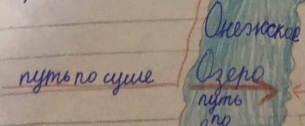 Онежское
путь по суше Озеро
путь
по